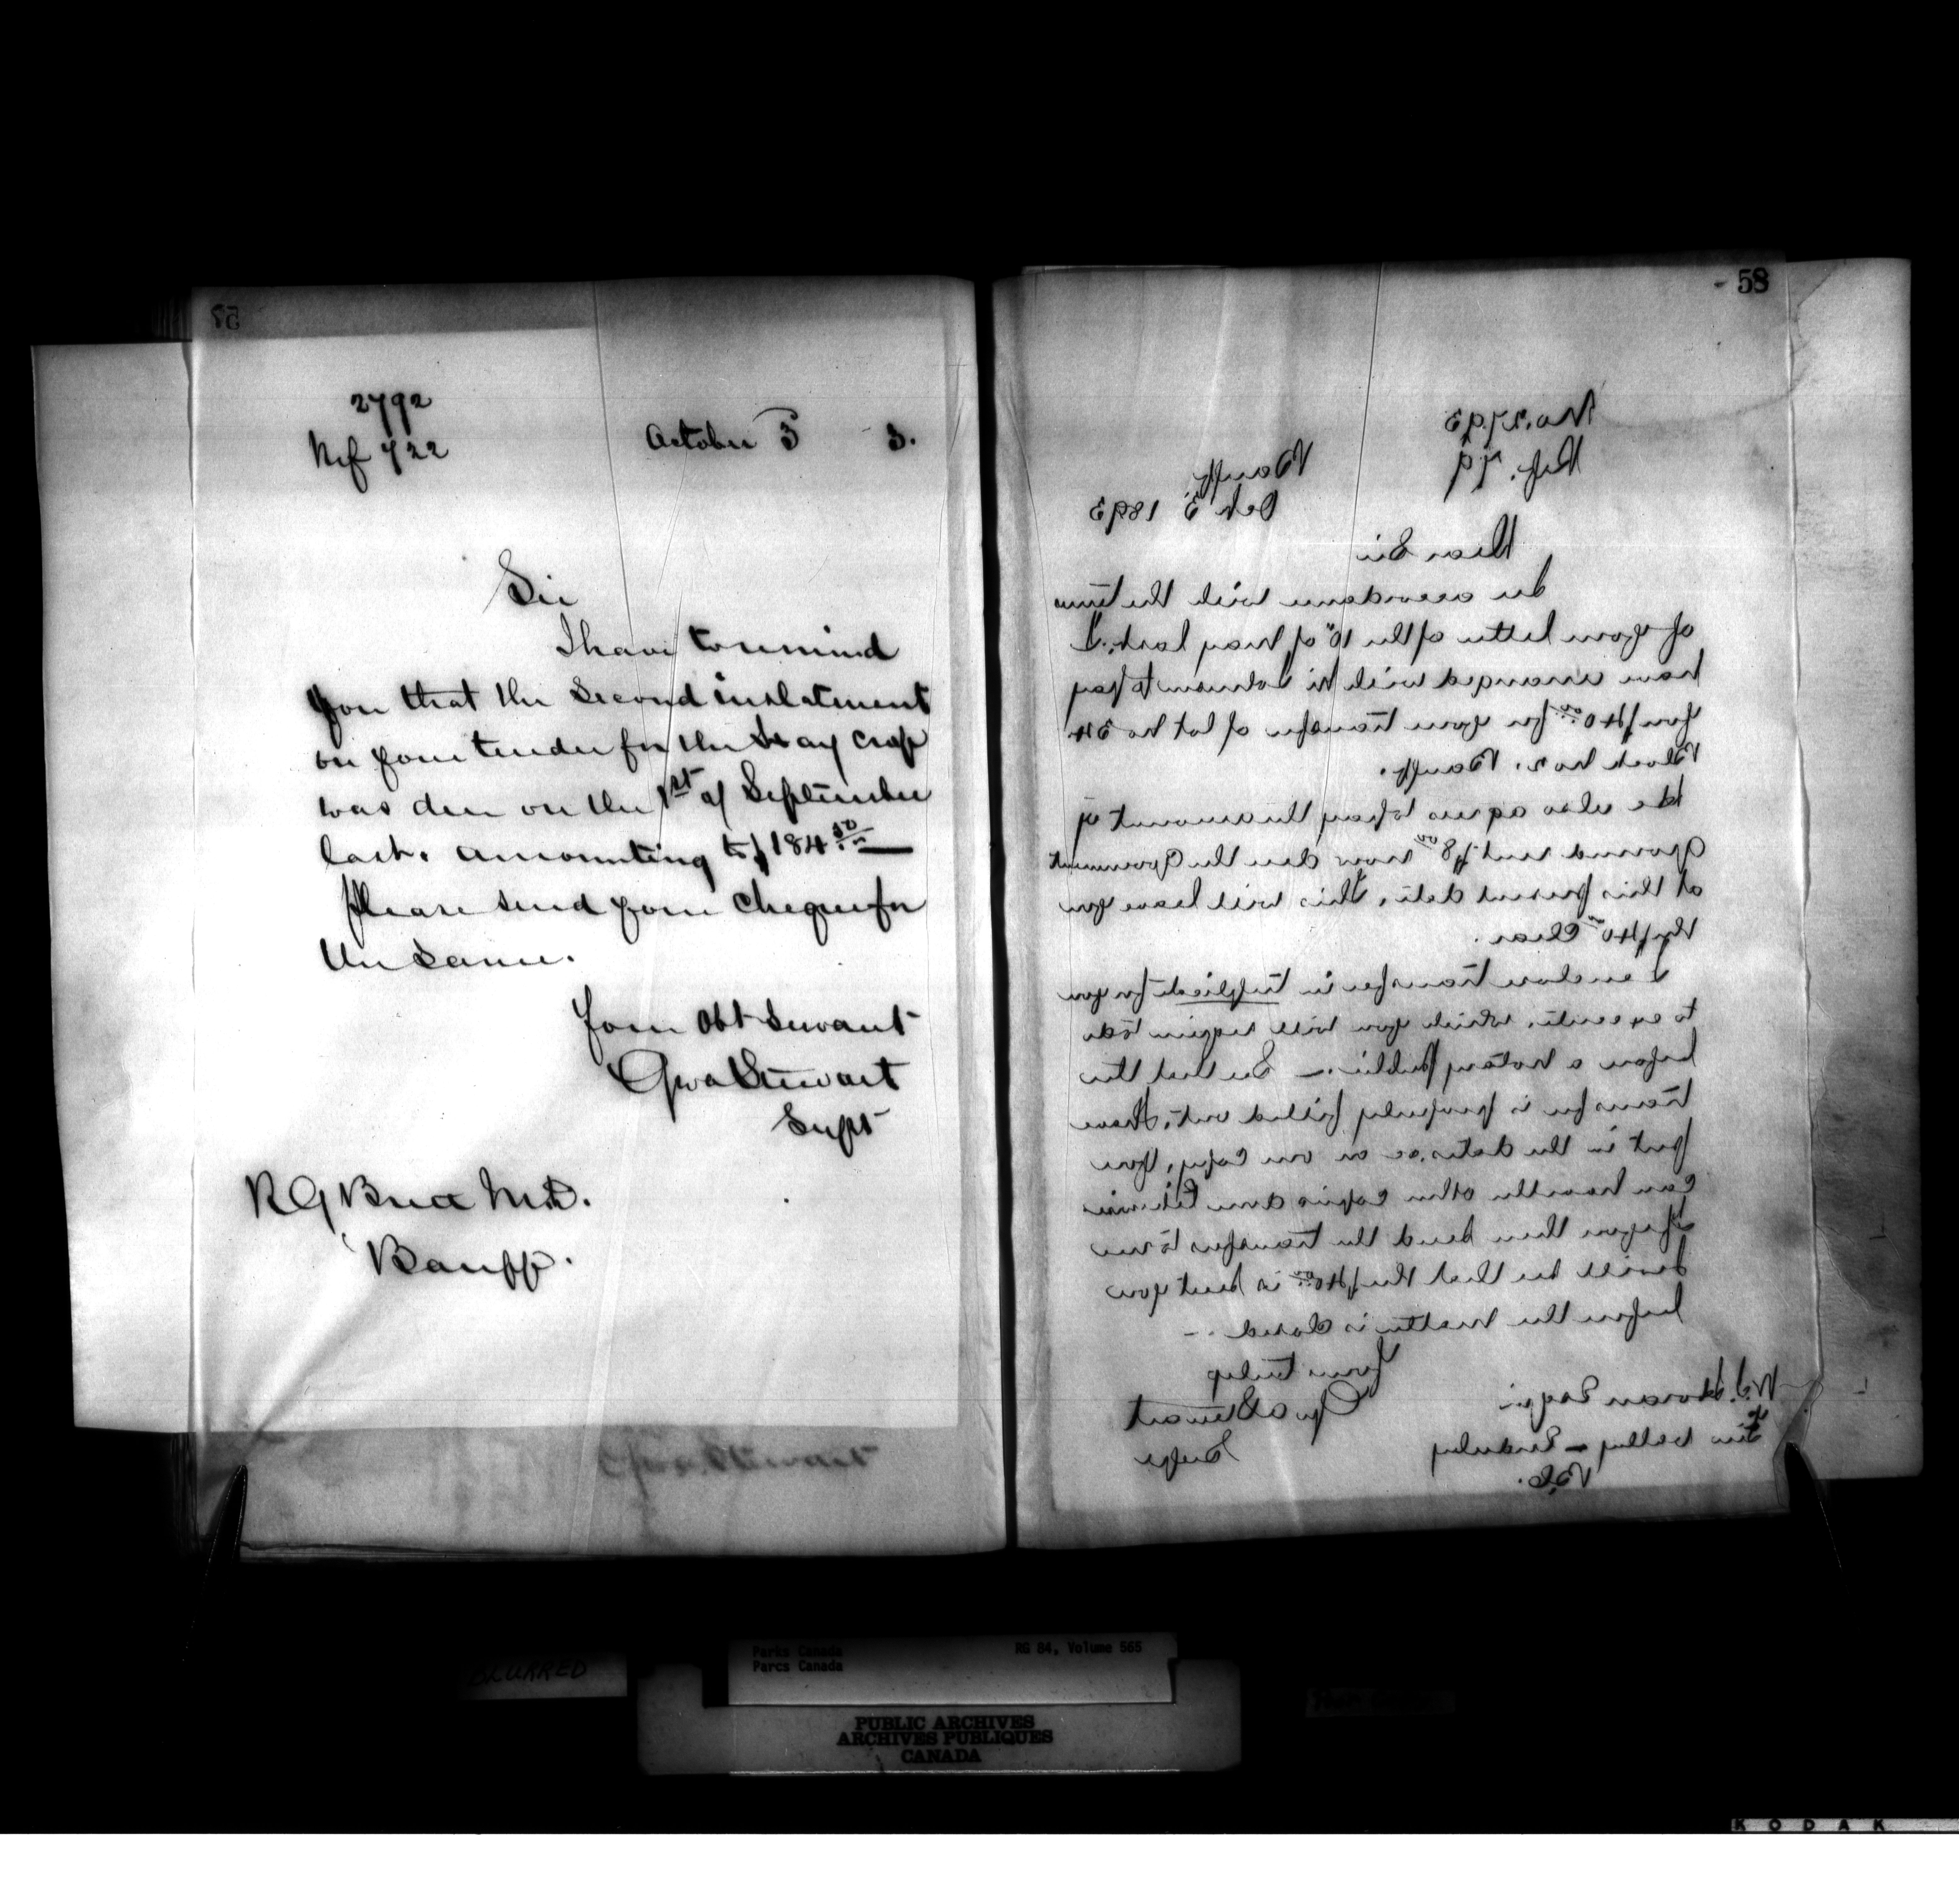 57
2792
Ref 722
October 3 3.
Sir
I have to remind
you that the Second instalment
on your tender for the Hay crop
was due on the 1st of September
last. amounting to $184 50/
Please send your cheque for
the same.
Your Obt Servant
Geo A Stewart
Supt
R G Brett M.D.
Banff.
Geo A. Stewart
58
No. 2793
Ref. 79
Banff.
Oct 3 1893
Dear Sir
In accordance with the terms
of your letter of the 10th of May last. I
have arranged with Mr to pay
you $40.00 for your transfer of lot No 24
Block No 2. Banff.
He also agrees to pay the amount of
ground rent $8.00 now due the Government
at this present date, this will leave you
the $40.00 Clear.
I enclose transfer in triplicate for you
to execute, which you will require to do
before a Notary Public. — See that the
transfer is properly filled out, I have
put in the dates &c on one copy, you
can have the other copies done likewise
If you then send the transfers to me
I will see that the $40.00 is sent you
before the matter is closed. —
Yours truly
Geo A Stewart
Supt
Horan Esqr
Valley — Enderby
B.C.
BLURRED
Parks Canada
Parcs Canada
RG 84, Volume 565
PUBLIC ARCHIVES
ARCHIVES PUBLIQUES
CANADA
KODAK